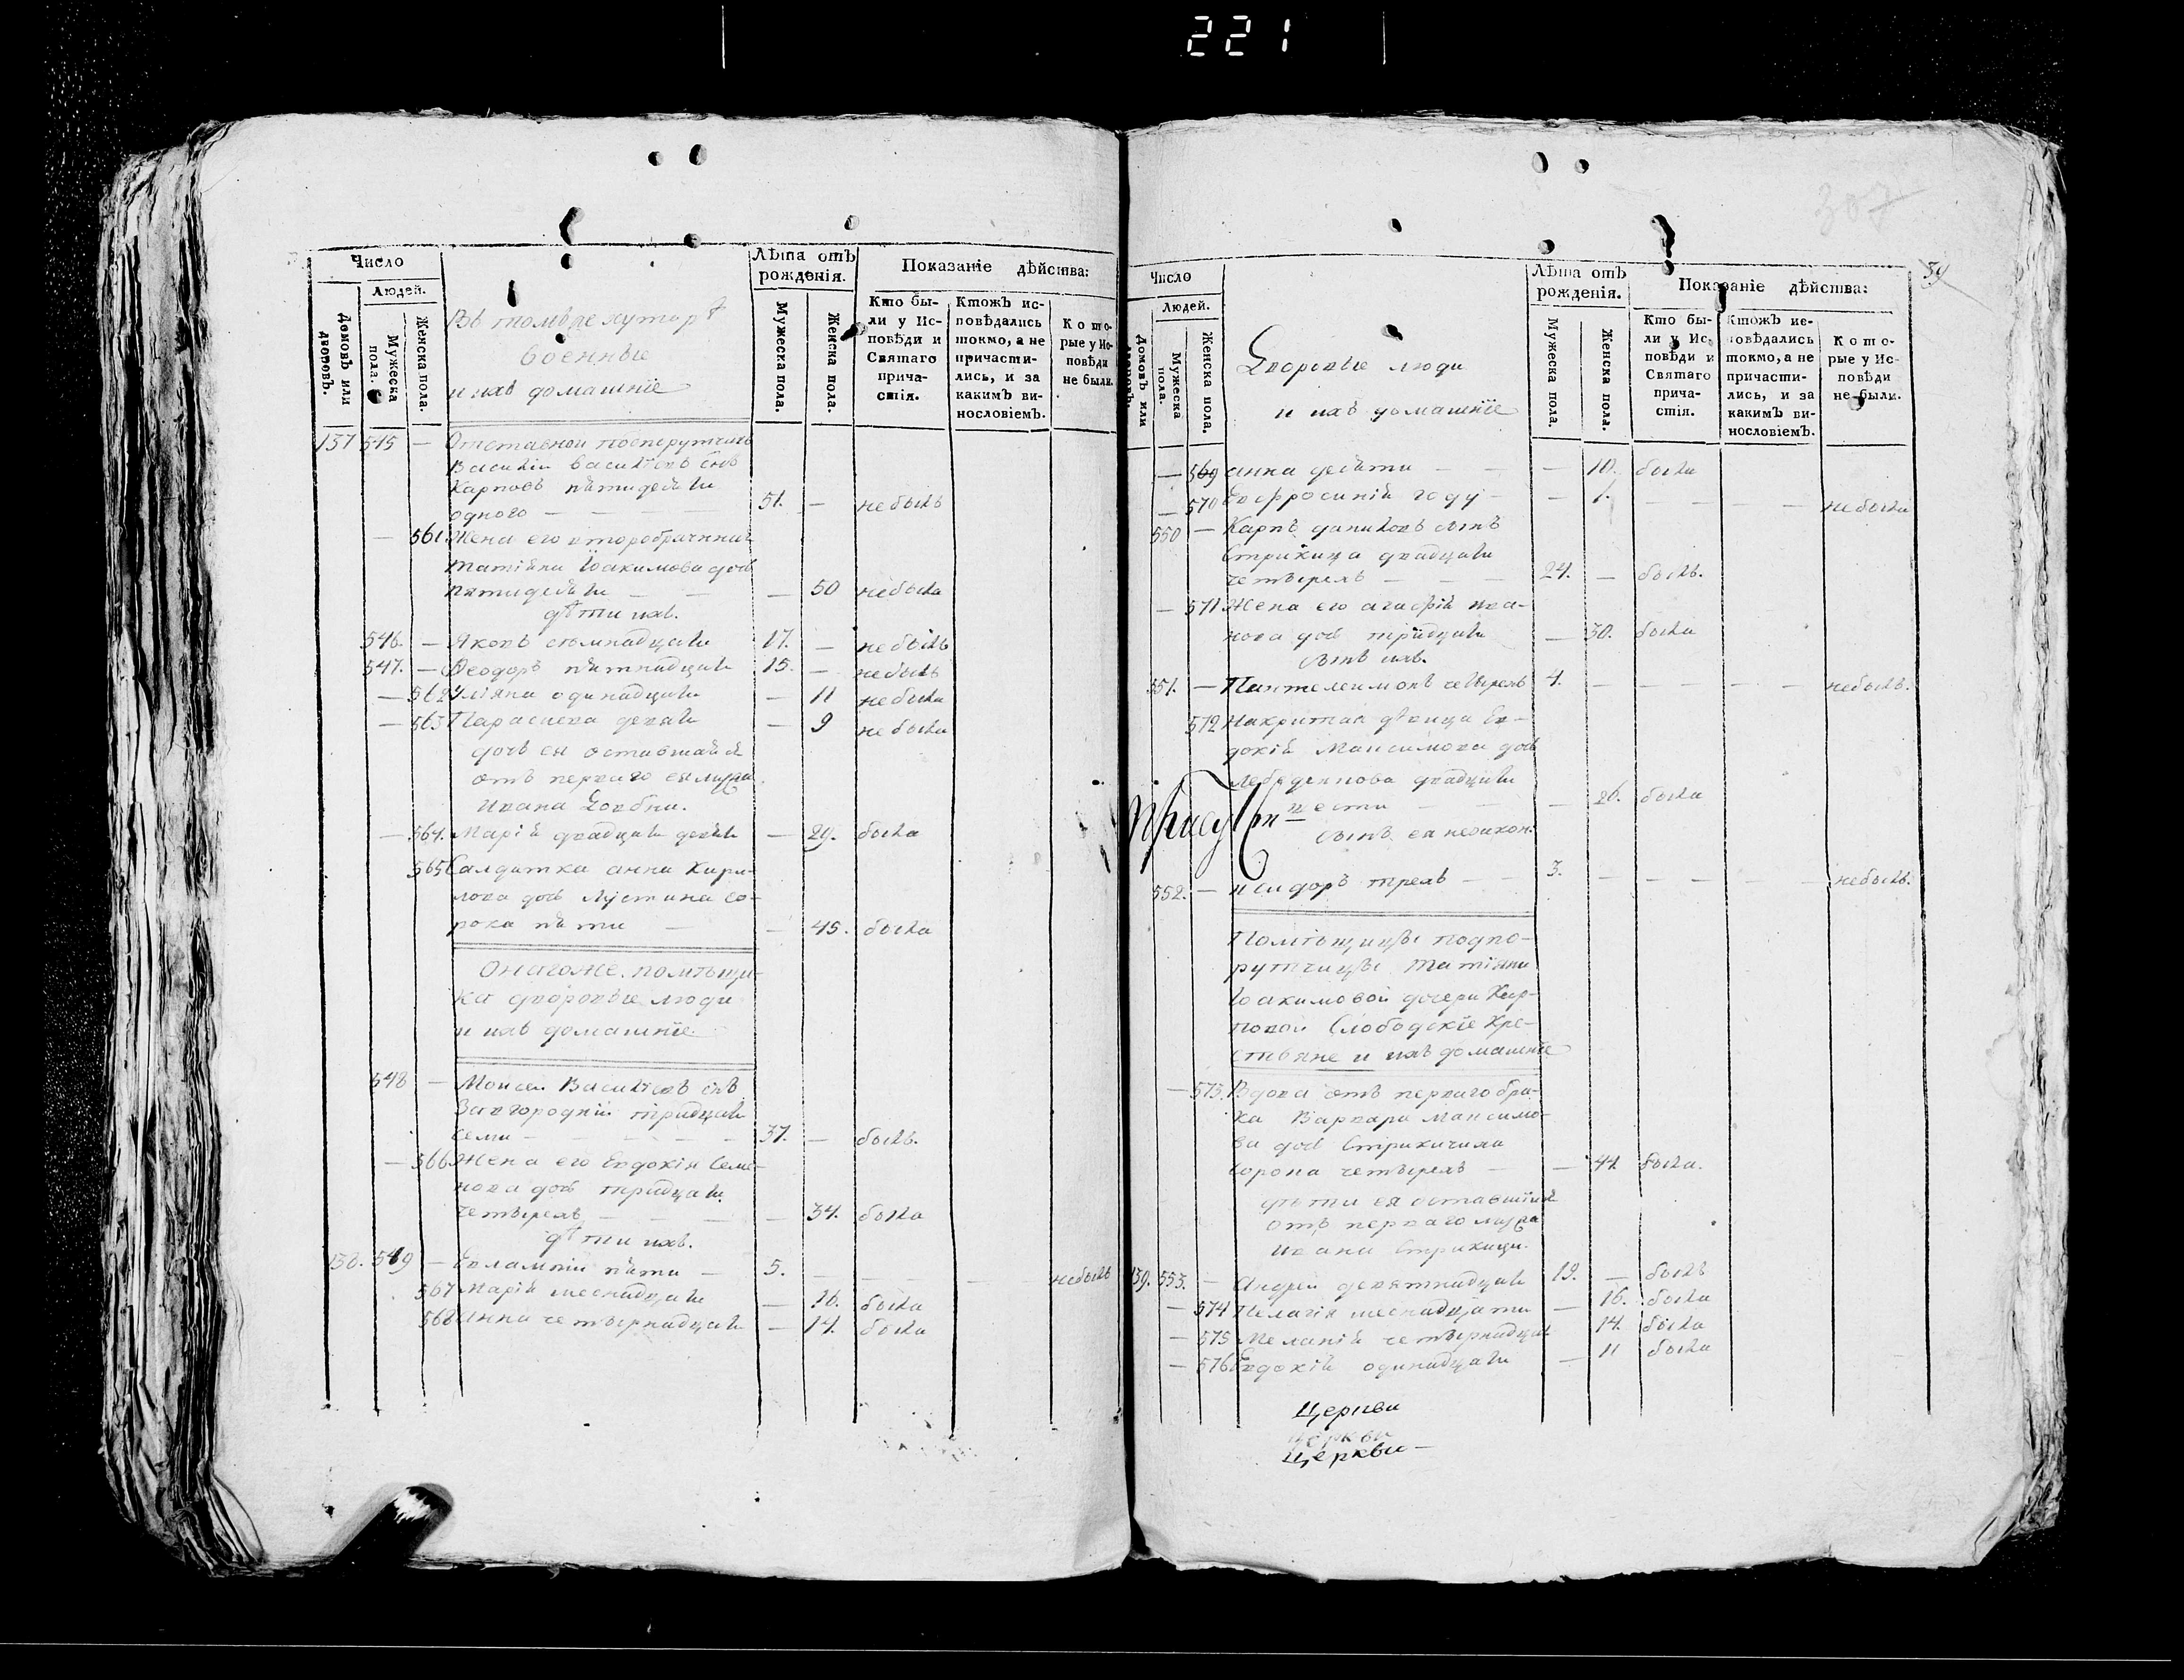 221
Число
Людей.
Домовъ или дворовъ.
Мужеска пола.
Женска пола.
Въ томъ же хуторѣ
военные
и ихъ домашніе
Лѣта отъ рожденія.
Мужеска пола.
Женска пола.
Показаніе дѣйства:
Кто бы-
ли у Ис-
повѣди и
Святаго
прича-
стія.
Ктожъ ис-
повѣдались
токмо, а не
причасти-
лись, и за
какимъ ви-
нословіемъ.
Кото-
рые у Ис-
повѣди
не были.
137 545 — Отставной
Василій Васильевъ снъ
Карповъ пятидесяти
одного — 51. — небылъ
— 561 Жена его второбрачная
Татіяна Іоакимова дочь
пятидесяти — — 50 небыла
дѣти ихъ.
546. — Яковъ семнадцати 17. — небылъ
547. — Феодоръ пятнадцати 15. — небылъ
— 562 Уліяна одинадцати — 11 небыла
— 563 Параскева девяти — 9 небыла
дочь ея оставшаяся
отъ перваго ея мужа
Ивана Довбни.
— 564. Марія двадцати девяти — 29. была
565 Салдатка анна Кири-
лова дочь со-
рока пяти — — 45. была
Онагоже помѣщи-
ка дворовые люди
и ихъ домашніе
548 — Моисей Васильевъ снъ
Завгородній тридцати
семи — 37. — былъ.
— 566 Жена его Евдокія Семе-
нова дочь тридцати
четырехъ — — 34. была
дѣти ихъ.
138. 549 — Евлампій пяти — 5. — — — небылъ
567 Марія шеснадцати — 16. была
568 Анна четырнадцати — 14. была
307
39
Число
Людей.
Домовъ или дворовъ.
Мужеска пола.
Женска пола.
Дворовые люди
и ихъ домашніе
Лѣта отъ рожденія.
Мужеска пола.
Женска пола.
Показаніе дѣйства:
Кто бы-
ли у Ис-
повѣди и
Святаго
прича-
стія.
Ктожъ ис-
повѣдались
токмо, а не
причасти-
лись, и за
какимъ ви-
нословіемъ.
Кото-
рые у Ис-
повѣди
не были.
— 569 анна десяти — — 10. была
— 570 Евфросинія году — — 1. — — — небыла
550 — Карпъ даниловъ сынъ
Стрижица двадцати
четырехъ — 24. — былъ.
— 571 Жена его агафія ива-
нова дочь тридцати — 30. была
сынъ ихъ.
551. — Пантелеимонъ четырехъ 4. — — — небылъ.
572 Накритая дѣвица Ев-
докія Максимова дочь
двадцати
шести — — 26. была
сынъ ея незакон:
552. — исидоръ трехъ — 3. — — — небылъ.
Помѣщицы подпо-
рутчицы Татіяны
Іоакимовой дочери Кар-
повой Слободскіе Кре-
стьяне и ихъ домашніе
— 573. Вдова отъ перваго бра-
ка Варвара Максимо-
ва дочь
сорока четырехъ — — 44 была.
дѣти ея оставшіися
отъ перваго мужа
ивана Стрижици.
139. 553. — Андрей девятнадцати 19. — былъ
— 574 Пелагія шеснадцати — 16. была
— 575 Меланія четырнадцати 14. была
— 576 Евдокія одинадцати — 11 была
Церкви
церкви
Церкви —